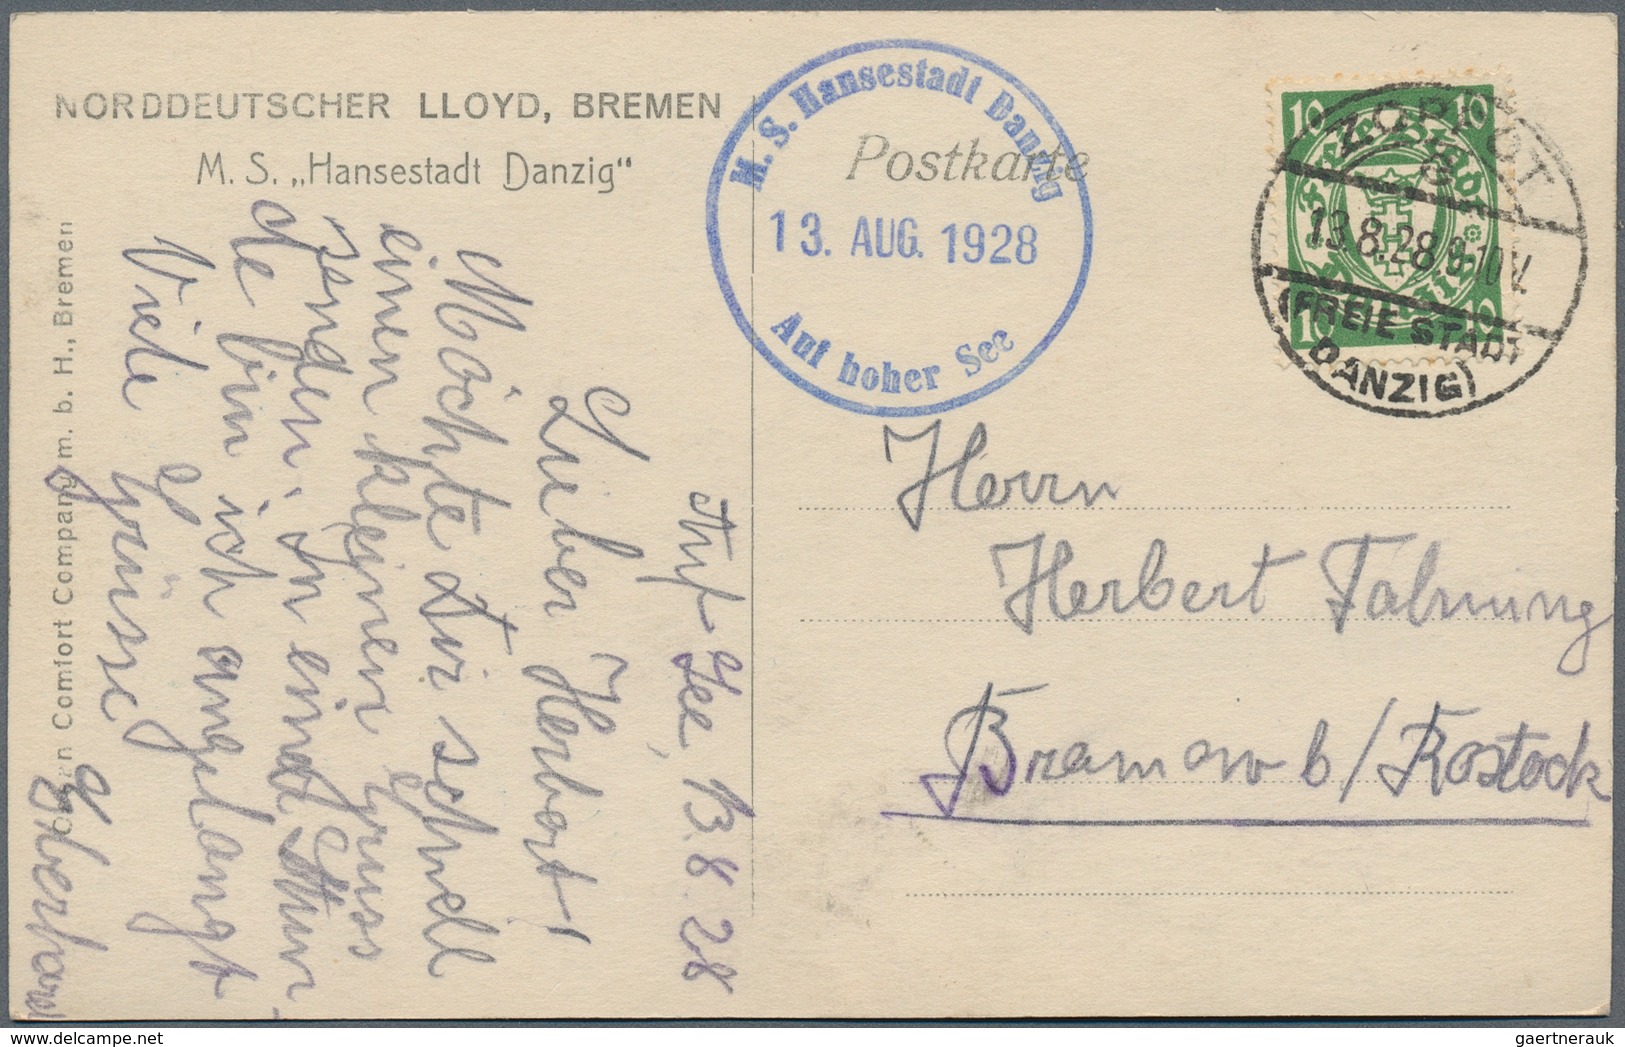 NORDDEUTSCHER LLOYD, BREMEN
M. S. „Hansestadt Danzig"
Postkarte
M. S. Hansestadt Danzig
13. AUG. 1928
Auf hoher See
10 10
10 10
ZOPPOT
13.8.28 9-10 V.
(FREIE STADT
DANZIG)
Auf See, 13.8.28
Lieber Herbert!
Möchte Dir schnell
einen kleinen Gruss
senden. In einer Stun-
de bin ich angelangt
Viele Grüsse
Eberhard
Herrn
Herbert
Bramow b/Rostock
Comfort Company m. b. H., Bremen
gaertnerauk